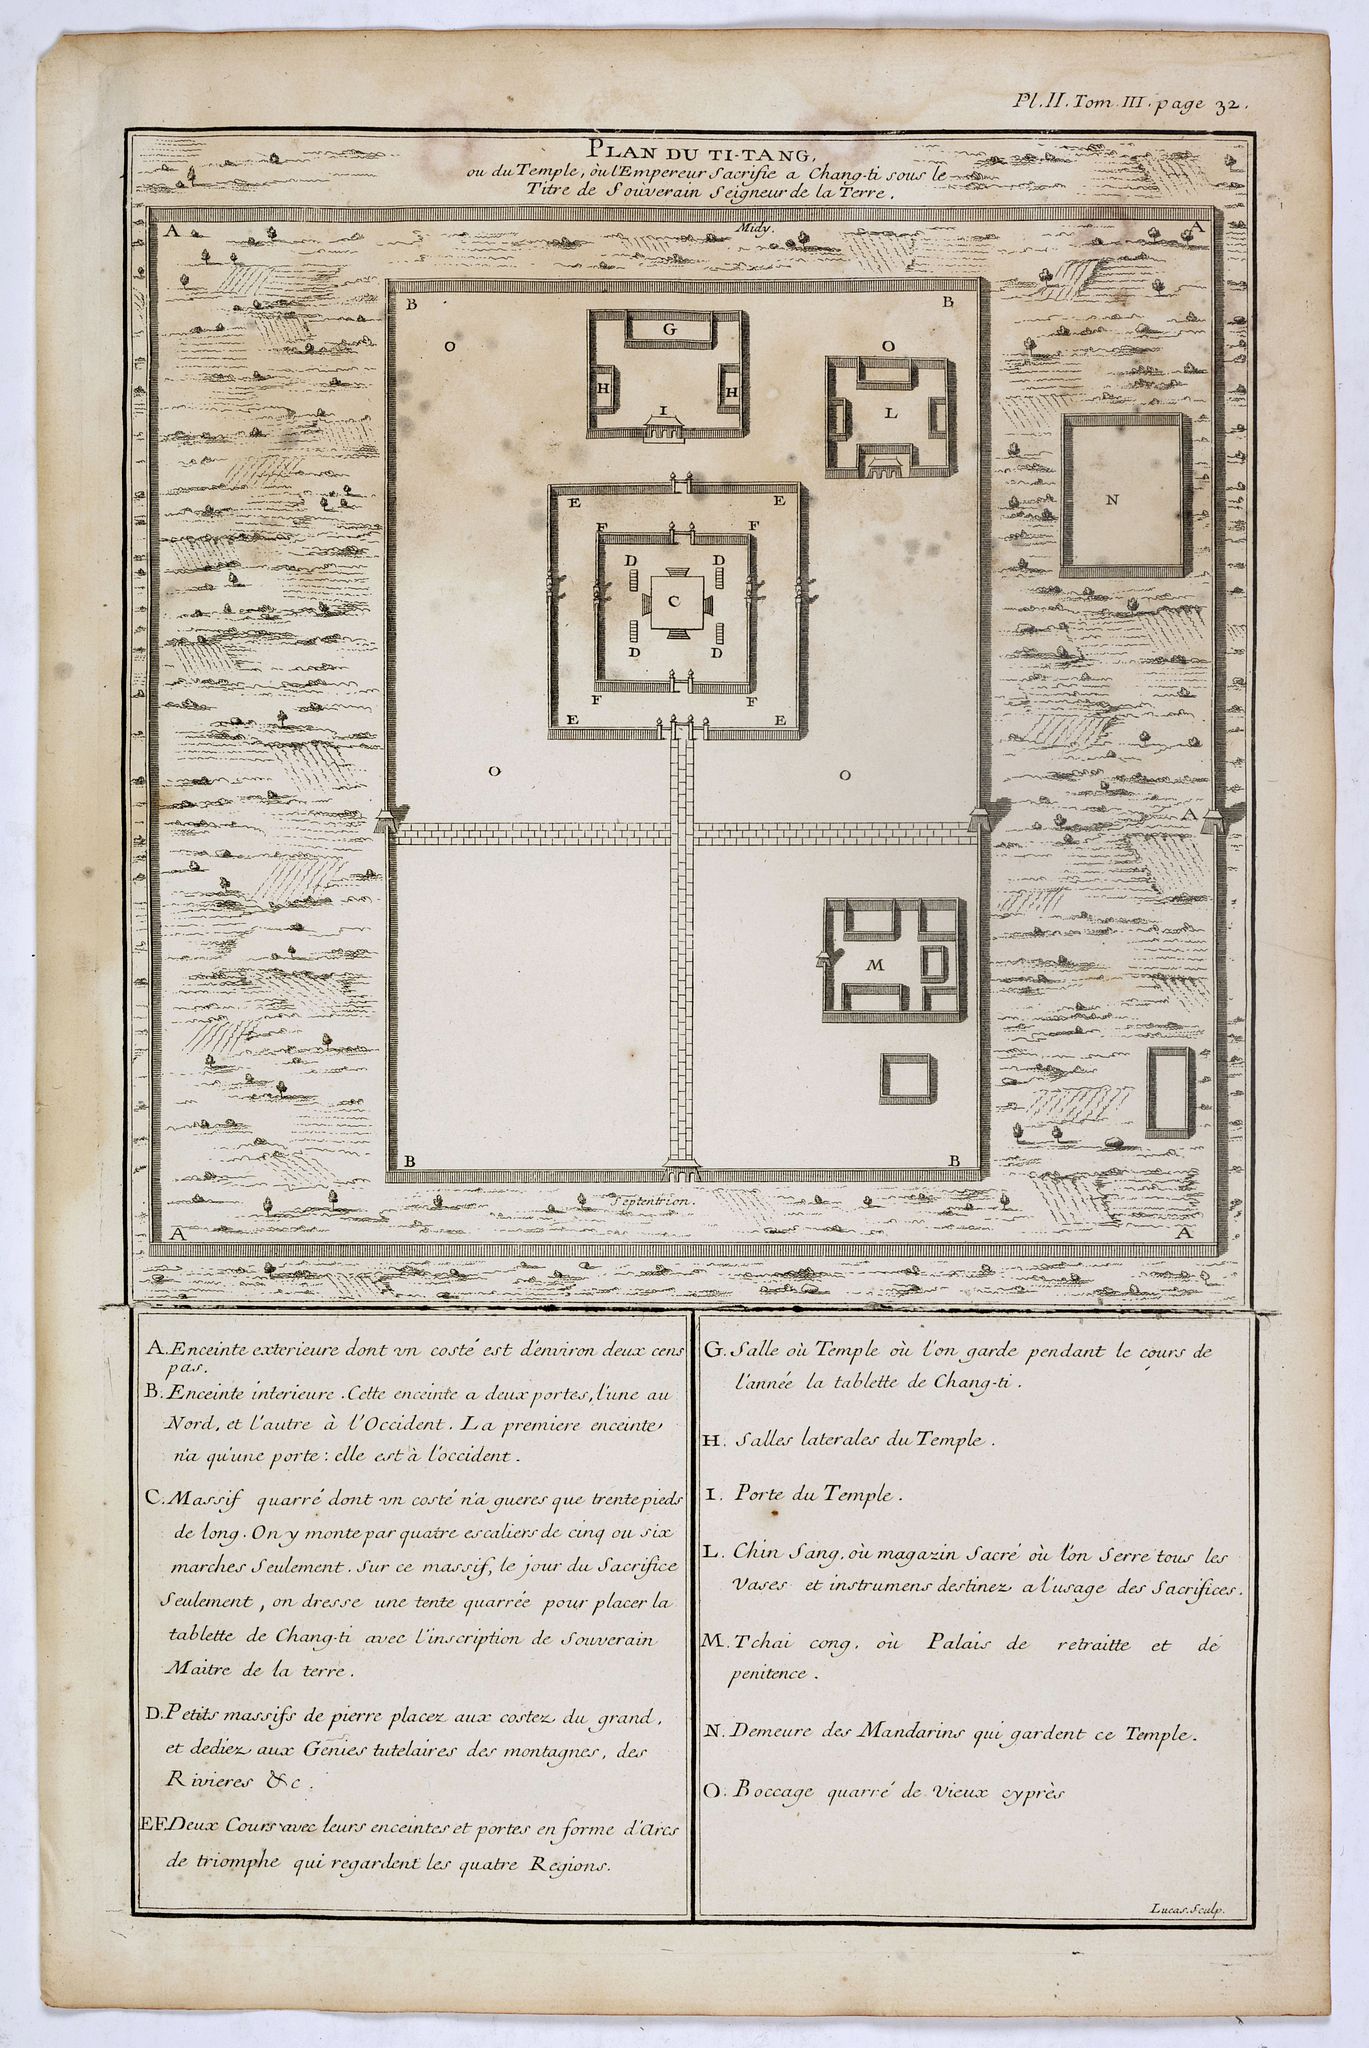 Pl. II. Tom. III. page 32.
PLAN DU TI-TANG,
ou du Temple, où l'Empereur Sacrifie a Chang-ti sous le
Titre de Souverain Seigneur de la Terre.
A
Midy.
A
B
B
G
O
O
H
H
L
I
E
E
N
F
F
D
D
C
D
D
F
F
E
E
O
O
A
M
B
B
Septentrion.
A
A
A. Enceinte exterieure dont vn costé est d'environ deux cens
pas.
B. Enceinte interieure. Cette enceinte a deux portes, l'une au
Nord, et l'autre à l'Occident. La premiere enceinte
n'a qu'une porte: elle est à l'occident.
C. Massif quarré dont vn costé n'a gueres que trente pieds
de long. On y monte par quatre escaliers de cinq ou six
marches Seulement. Sur ce massif, le jour du Sacrifice
Seulement, on dresse une tente quarrée pour placer la
tablette de Chang-ti avec l'inscription de Souverain
Maitre de la terre.
D. Petits massifs de pierre placez aux costez du grand,
et dediez aux Genies tutelaires des montagnes, des
Rivieres &c.
EF. Deux Cours avec leurs enceintes et portes en forme d'Arcs
de triomphe qui regardent les quatre Regions.
G. Salle où Temple où l'on garde pendant le cours de
l'année la tablette de Chang-ti.
H. Salles laterales du Temple.
I. Porte du Temple.
L. Chin Sang, où magazin Sacré où l'on Serre tous les
Vases et instrumens destinez a l'usage des Sacrifices.
M. Tchai cong, où Palais de retraitte et dé
penitence.
N. Demeure des Mandarins qui gardent ce Temple.
O. Boccage quarré de Vieux cyprès
Lucas. Sculp.